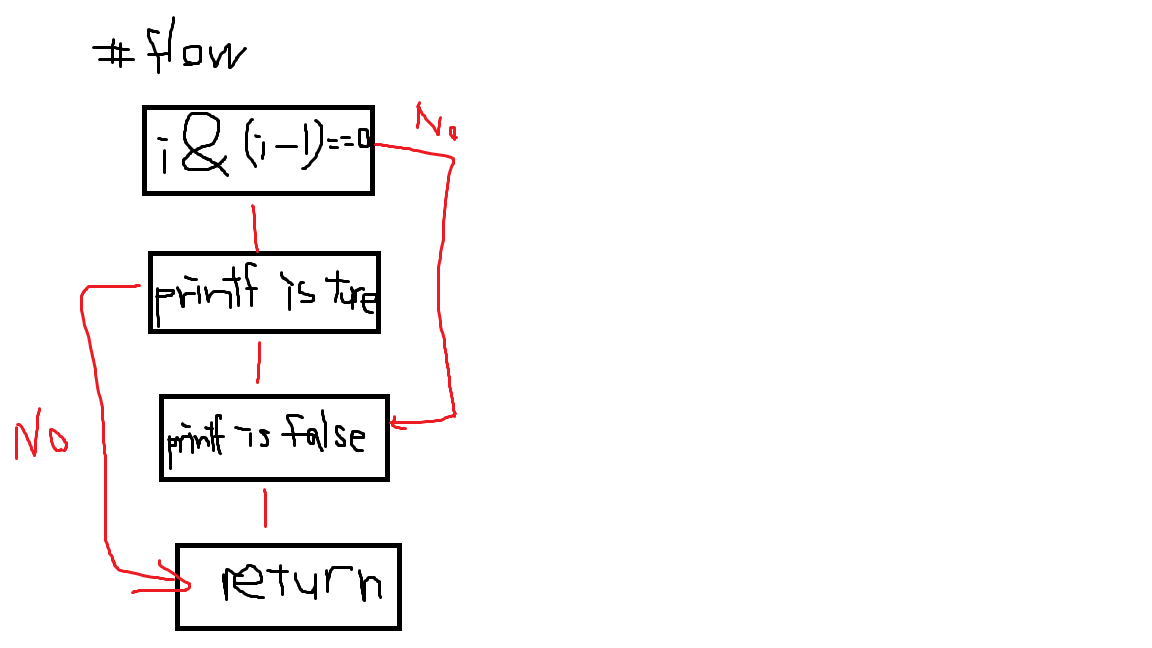 #flow
i&(i-1)==0
No
printf is ture
printf is false
No
return